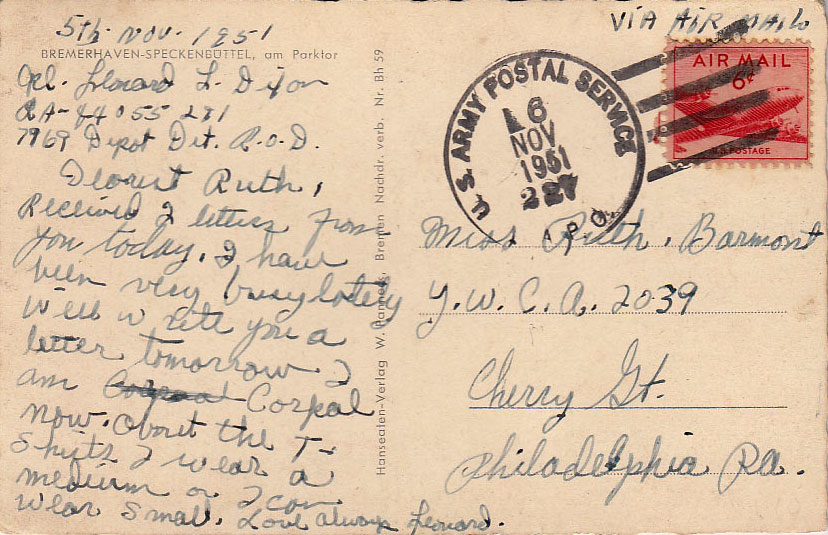 5th. Nov. 1951
BREMERHAVEN-SPECKENBÜTTEL, am Parktor
Leonard L. Dixon
RA-44055281
7969 Depot Det. R.O.D.
Dearest Ruth,
Received 2 letters from
you today. I have
been very busy lately
Well write you a
letter tomorrow I
am Corpal
now. About the T-
Shirts I wear a
medium or I can
wear small. Love always Leonard.
Hansealen-Verlag W. Bremen Nachdr. verb. Nr. Bh 59
VIA AIR MAIL
AIR MAIL
6¢
U.S. POSTAGE
U.S. ARMY POSTAL SERVICE
6
NOV
1951
227
A.P.O.
Miss Ruth. Barmont
Y.W.C.A. 2039
Cherry St.
Philadelphia Pa.